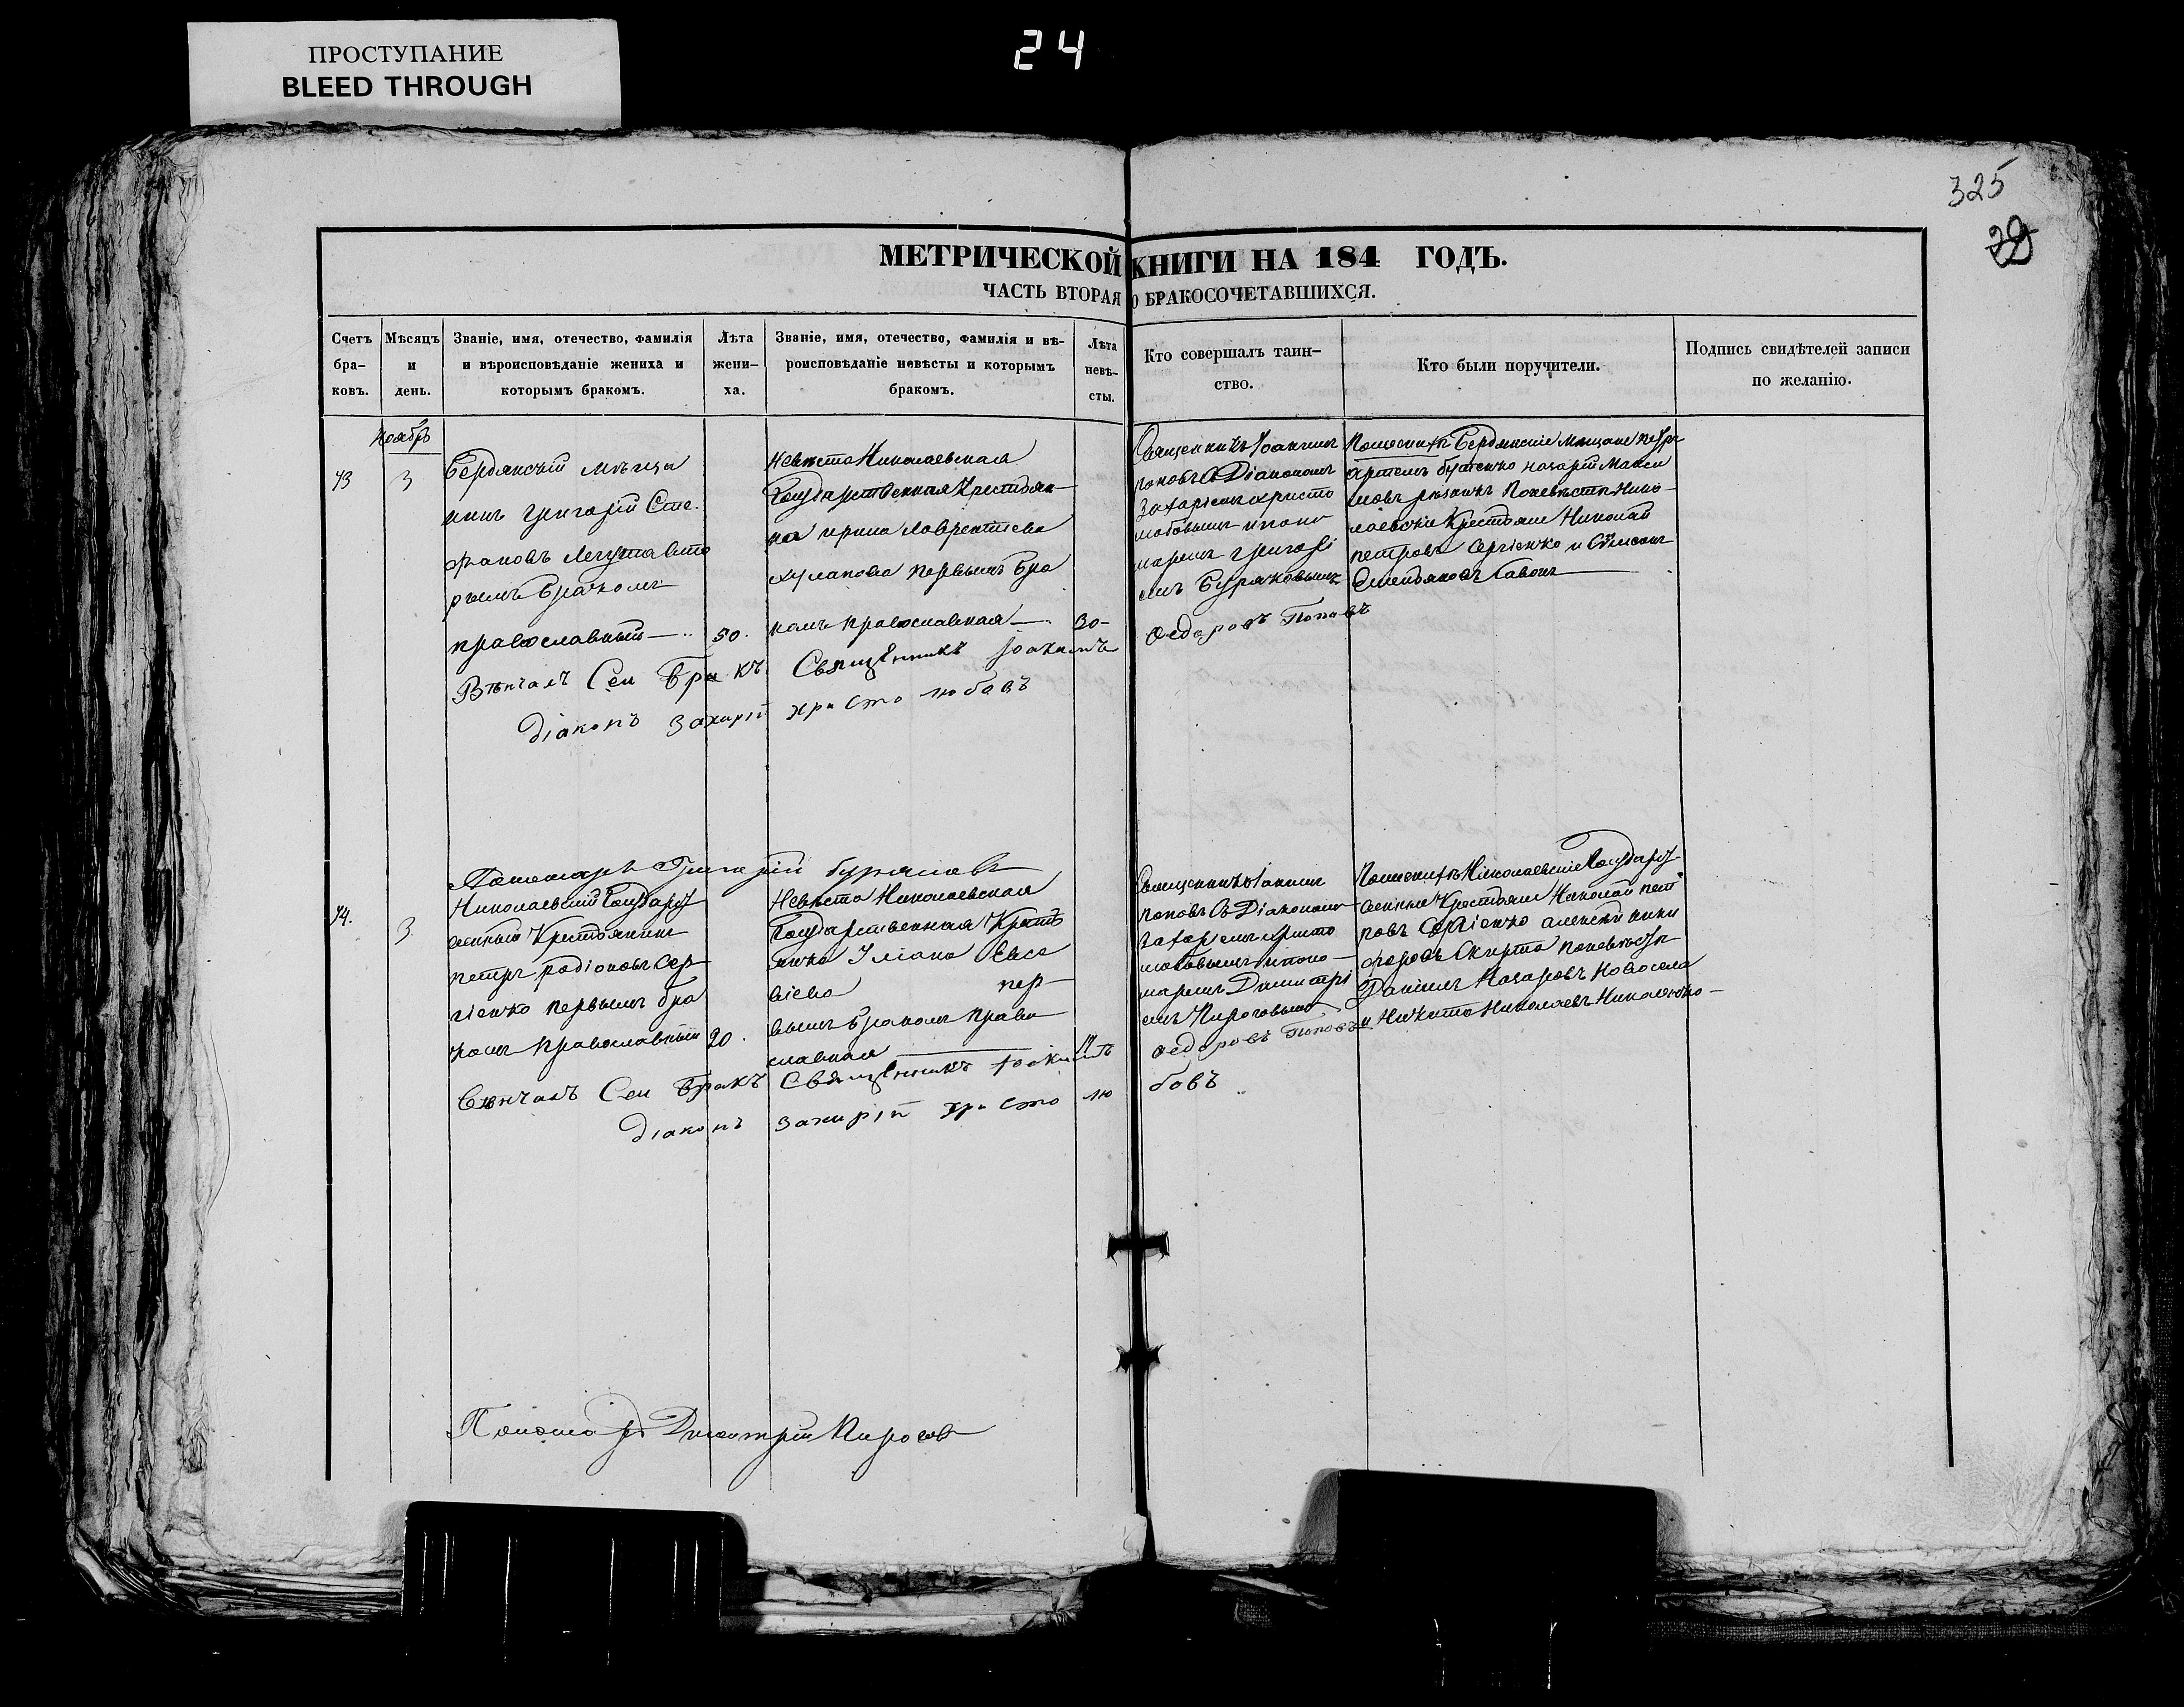 ПРОСТУПАНИЕ
BLEED THROUGH
24
325
МЕТРИЧЕСКОЙ КНИГИ НА 184 ГОДЪ.
ЧАСТЬ ВТОРАЯ О БРАКОСОЧЕТАВШИХСЯ.
Счетъ
бра-
ковъ.
Мѣсяцъ
и
день.
Званіе, имя, отечество, фамилія
и вѣроисповѣданіе жениха и
которымъ бракомъ.
Лѣта
жени-
ха.
Званіе, имя, отечество, фамилія и вѣ-
роисповѣданіе невѣсты и которымъ
бракомъ.
Лѣта
невѣ-
сты.
Кто совершалъ таин-
ство.
Кто были поручители.
Подпись свидѣтелей записи
по желанію.
Ноябрь
3
Бердянскій мѣща
нинъ Григорій Сте
фановъ вто
рымъ Бракомъ
православный
50.
Невѣста Николаевская
Государственная Крестьян-
ка ирина Лаврентиева
первымъ Бра
комъ православная
30-
Священникъ Іоакимъ
поповъ съ Діакономъ
Захаріемъ христо
любовымъ и поно
маремъ григорі
емъ Буряковымъ
Федоровъ Поповъ
По женихѣ Бердянскіе мещане петръ
назарій Макси
мовъ По невѣстѣ Нико-
лаевскіе Крестьяне Николай
петровъ Сергіенко и
Вѣнчалъ Сей Бракъ Священникъ Іоакимъ
Діаконъ Захарій христолюбовъ
Пономарь Григорій буряковъ
74.
3
Николаевскій Государст
венный Крестьянинъ
петръ родіоновъ Сер
гіенко первымъ бра
комъ православный
20.
Невѣста Николаевская
Государственная Кресть
янка Уліана Евсе
віева пер-
вымъ Бракомъ право
славная
Священникъ Іоакимъ
поповъ Съ Діакономъ
захаріемъ христо
любовымъ и поно-
маремъ Димитрі
емъ Пироговымъ
Федоровъ Поповъ
По женихѣ Николаевскіе Государст-
венные Крестьяне Николай пет
ровъ Сергіенко алексѣй ники
форовъ Скирта По невѣстѣ
Даніилъ Назаровъ Новосела
и Никита Николаевъ
Вѣнчалъ Сей Бракъ Священникъ Іоакимъ
діаконъ Захарій христо лю бовъ
Пономарь Димитрій Пироговъ